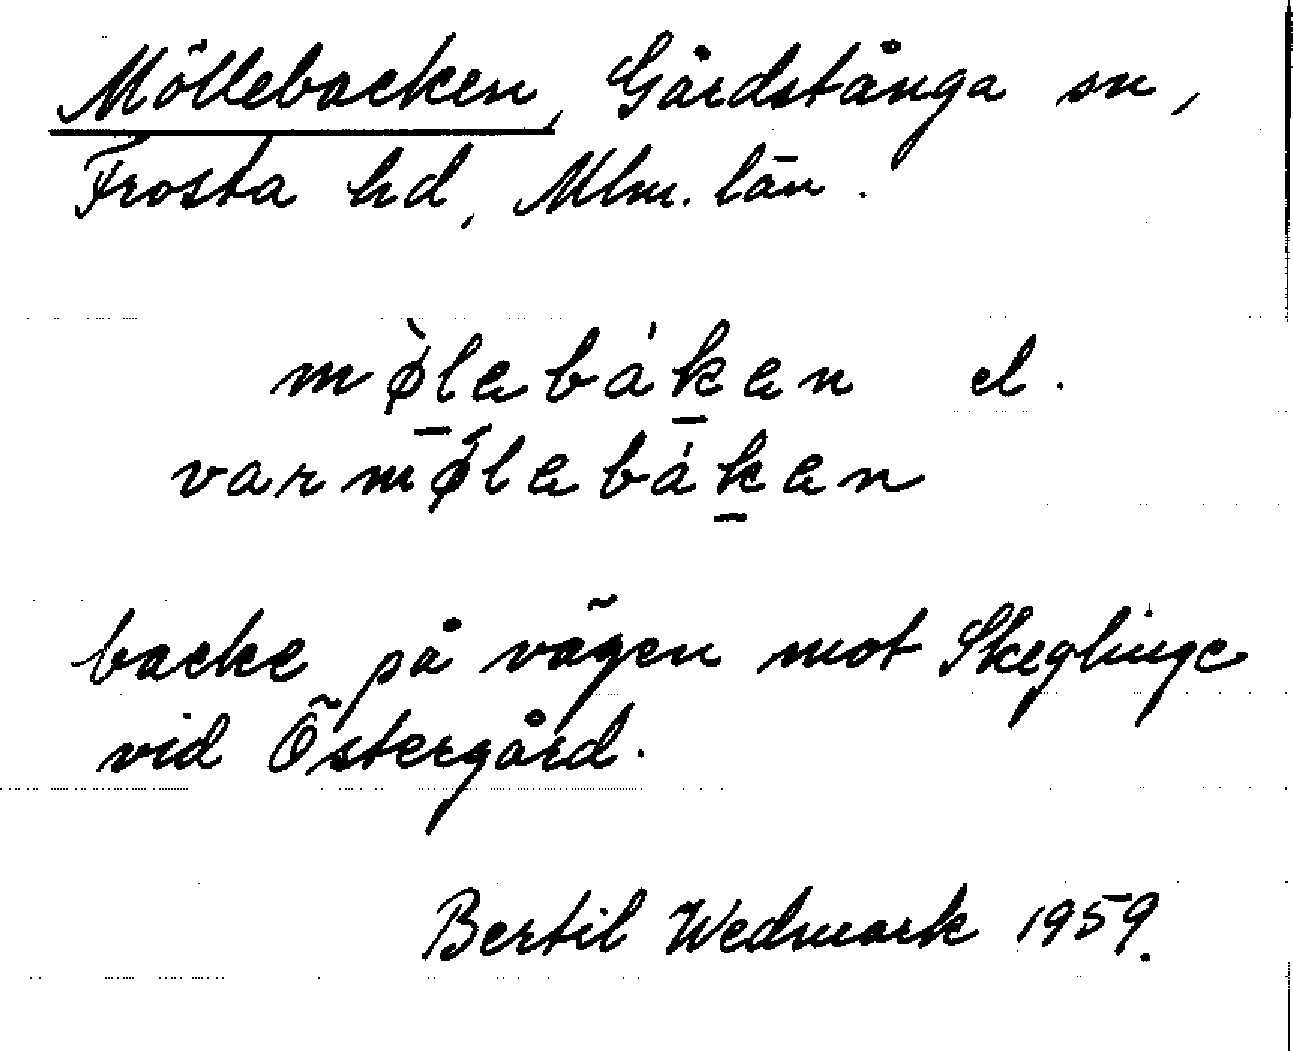 Möllebacken, Gårdstånga sn,
Frosta hd, Mlm. län.
mø̱̀lebáḵen el.
varmǿlebáḵen
backe på vägen mot Skeglinge
vid Östergård.
Bertil Wedmark 1959.